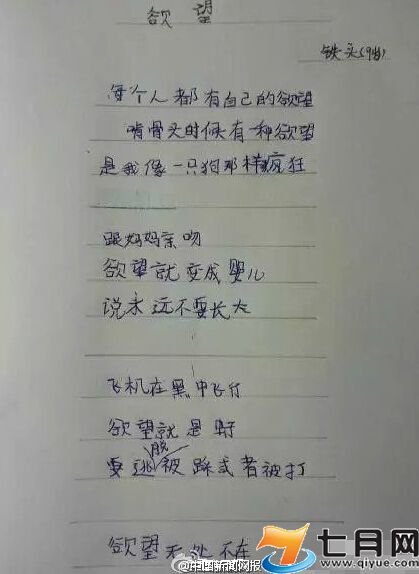 欲望
铁头(9岁)
每个人都有自己的欲望
啃骨头时候有一种欲望
是我像一只狗那样疯狂
跟妈妈亲吻
欲望就变成婴儿
说永远不要长大
飞机在黑中飞行
欲望就是
要逃脱被踩或者被打
欲望无处不在
@中国新闻
七月网
www.qiyue.com